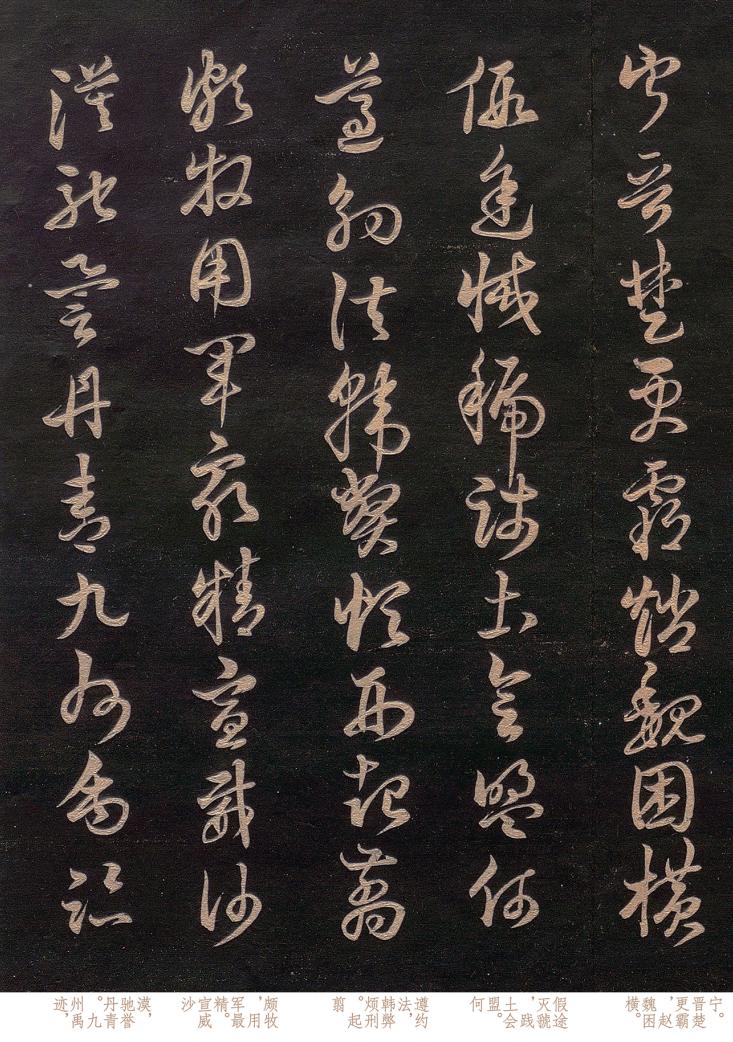 寧晉楚更霸趙魏困橫
假途滅虢踐土會盟何
遵約法韓弊煩刑起翦
頗牧用軍最精宣威沙
漠馳譽丹青九州禹跡
宁。晋楚更霸,赵魏困横。
假途灭虢,践土会盟。何
遵约法,韩弊烦刑。起翦
颇牧,用军最精。宣威沙
漠,驰誉丹青。九州禹迹,